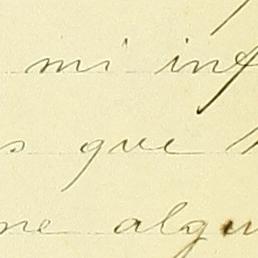 mi inf
s que
ne algu